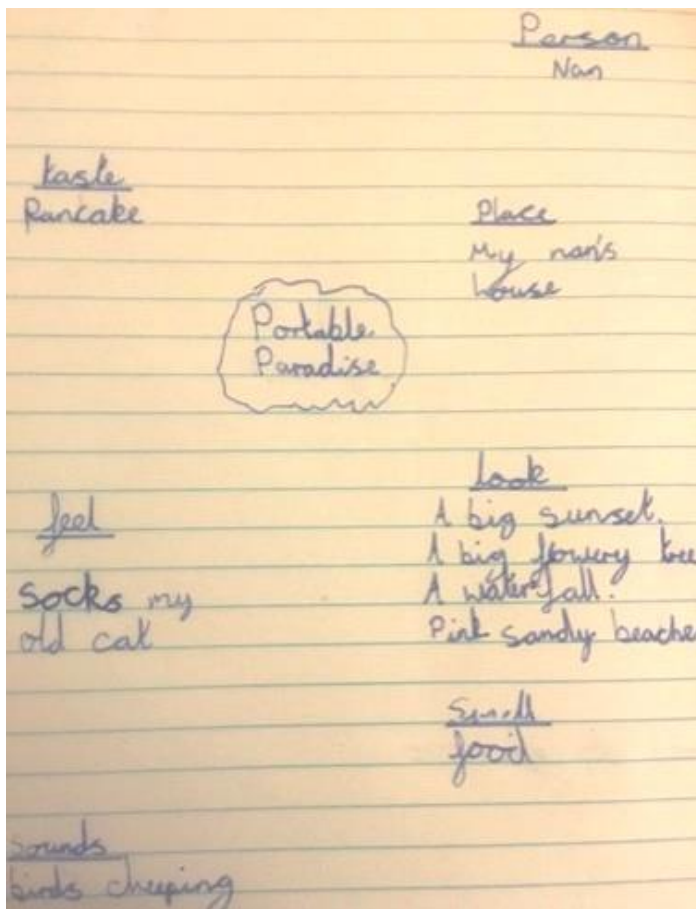 Person
Nan
taste
Pancake
Place
My nan's
house
Portable
Paradise
Look
A big sunset.
A big flowery tree
A waterfall.
Pink sandy beache
feel
Socks my
old cat
Smell
food
Sounds
birds cheeping